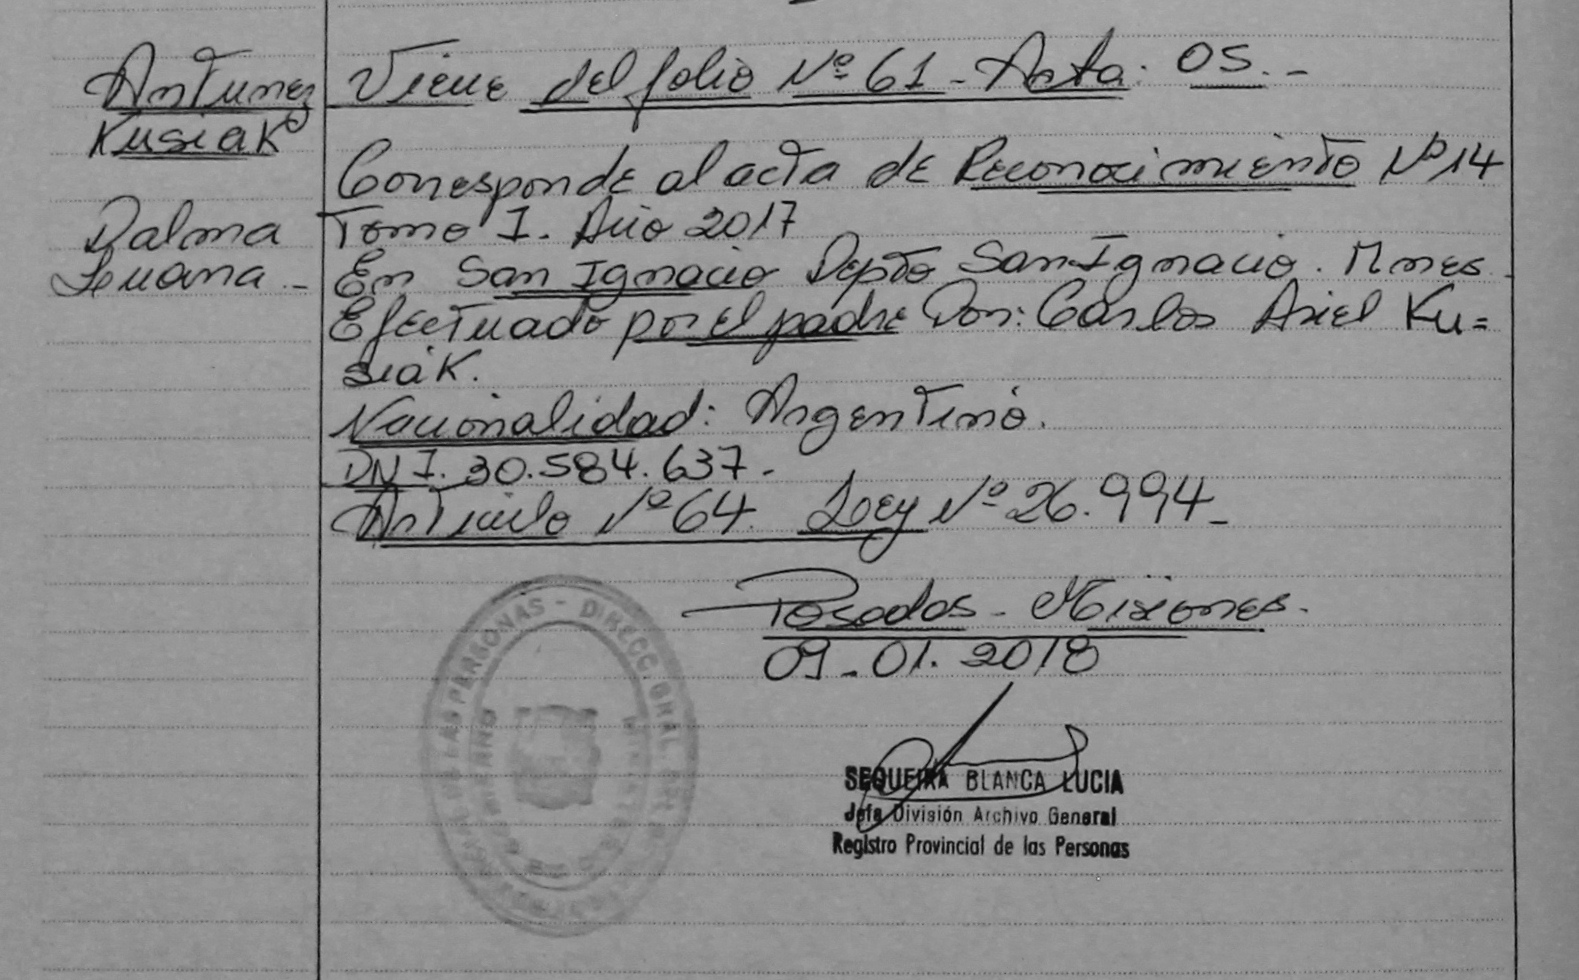 Antunez
Kusiak
Dalma
Luana -
Viene del folio Nº 61 - Acta: 05. -
Corresponde al acta de Reconocimiento Nº 14
Tomo I. Año 2017
En San Ignacio Depto San Ignacio. Mnes.
Efectuado por el padre Don: Carlos Ariel Ku=
siak.
Nacionalidad: Argentino.
DNI. 30.584.637.-
Articulo Nº 64. Ley Nº 26.994-
Posadas - Misiones.
09-01.2018
SEQUEIRA BLANCA LUCIA
Jefa División Archivo General
Registro Provincial de las Personas
LAS PERSONAS - DIRECC. GRAL.